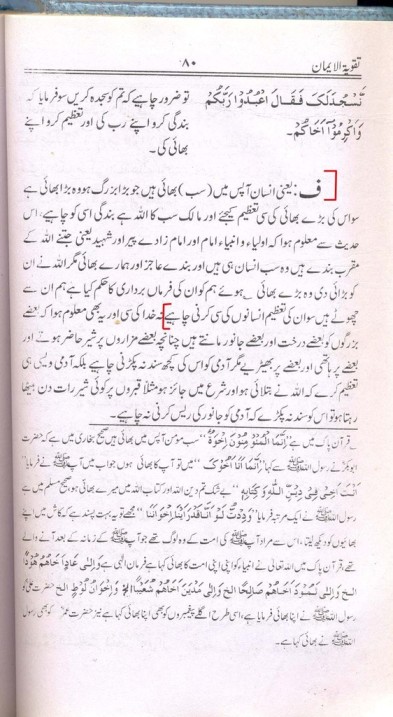 تقویۃ الایمان
۸۰
نَسْجُدَ لَکَ فَقَالَ اعْبُدُوْا رَبَّکُمْ
وَاَکْرِمُوْا اَخَاکُمْ۔
تو ضرور چاہیے کہ تم کو سجدہ کریں سو فرمایا کہ
بندگی کرو اپنے رب کی اور تعظیم کرو اپنے
بھائی کی۔
ف: یعنی انسان آپس میں (سب) بھائی ہیں جو بڑا بزرگ ہو وہ بڑا بھائی ہے
سو اس کی بڑے بھائی کی سی تعظیم کیجئے اور مالک سب کا اللہ ہے بندگی اسی کو چاہیے، اس
حدیث سے معلوم ہوا کہ اولیاء و انبیاء امام اور امام زادے پیر اور شہید یعنی جتنے اللہ کے
مقرب بندے ہیں وہ سب انسان ہی ہیں اور بندے عاجز اور ہمارے بھائی مگر اللہ نے ان
کو بڑائی دی وہ بڑے بھائی ہوئے ہم کو ان کی فرماں برداری کا حکم کیا ہے ہم ان سے
چھوٹے ہیں سو ان کی تعظیم انسانوں کی سی کرنی چاہیے نہ خدا کی سی اور یہ بھی معلوم ہوا کہ بعضے
بزرگوں کو بعضے درخت اور بعضے جانور مانتے ہیں چنانچہ بعضے مزاروں پر شیر حاضر ہوتے اور
بعضے پر ہاتھی اور بعضے پر بھیڑیے مگر آدمی کو اس کی کچھ سند نہ پکڑنی چاہیے بلکہ آدمی ویسی ہی
تعظیم کرے کہ اللہ نے بتلائی ہو اور شرع میں جائز ہو مثلاً قبروں پر کوئی شیر رات دن بیٹھا
رہتا ہو تو اس کو سند نہ پکڑے کہ آدمی کو جانور کی ریس کرنی نہ چاہیے۔
قرآن پاک میں ہے "اِنَّمَا الْمُؤْمِنُوْنَ اِخْوَۃٌ" سب مؤمن آپس میں بھائی ہیں صحیح بخاری میں ہے کہ حضرت
ابوبکرؓ نے رسول اللہ ﷺ سے کہا "اِنَّمَا اَنَا اَخُوْکَ" میں تو آپ کا بھائی ہوں جواب میں آپ ﷺ نے فرمایا
اَنْتَ اَخِیْ فِیْ دِیْنِ اللّٰہِ وَکِتَابِہٖ" بے شک تم دین اللہ اور کتاب اللہ میں میرے بھائی ہو صحیح مسلم میں ہے
رسول اللہ ﷺ نے ایک مرتبہ فرمایا "وَدِدْتُ لَوْ اَنَّا قَدْ رَاَیْنَا اِخْوَانَنَا" مجھے تو یہ بہت پسند ہے کہ کاش میں اپنے
بھائیوں کو دیکھ لیتا، اس سے مراد آپ ﷺ کی امت کے وہ لوگ تھے جو آپ ﷺ کے زمانہ کے بعد آنے والے
تھے، قرآن پاک میں اللہ تعالیٰ نے انبیاء کو اپنی اپنی امت کا بھائی کہا ہے فرمان الٰہی ہے وَاِلٰی عَادٍ اَخَاھُمْ ھُوْدًا
الخ وَاِلٰی ثَمُوْدَ اَخَاھُمْ صَالِحًا الخ وَاِلٰی مَدْیَنَ اَخَاھُمْ شُعَیْبًا الخ وَاِخْوَانُ لُوْطٍ الخ حضرت علیؓ کو
رسول اللہ ﷺ نے اپنا بھائی فرمایا ہے، اسی طرح اگلے پیغمبروں کو بھی اپنا بھائی کہا ہے نیز حضرت عمرؓ کو بھی رسول
اللہ ﷺ نے بھائی کہا ہے۔